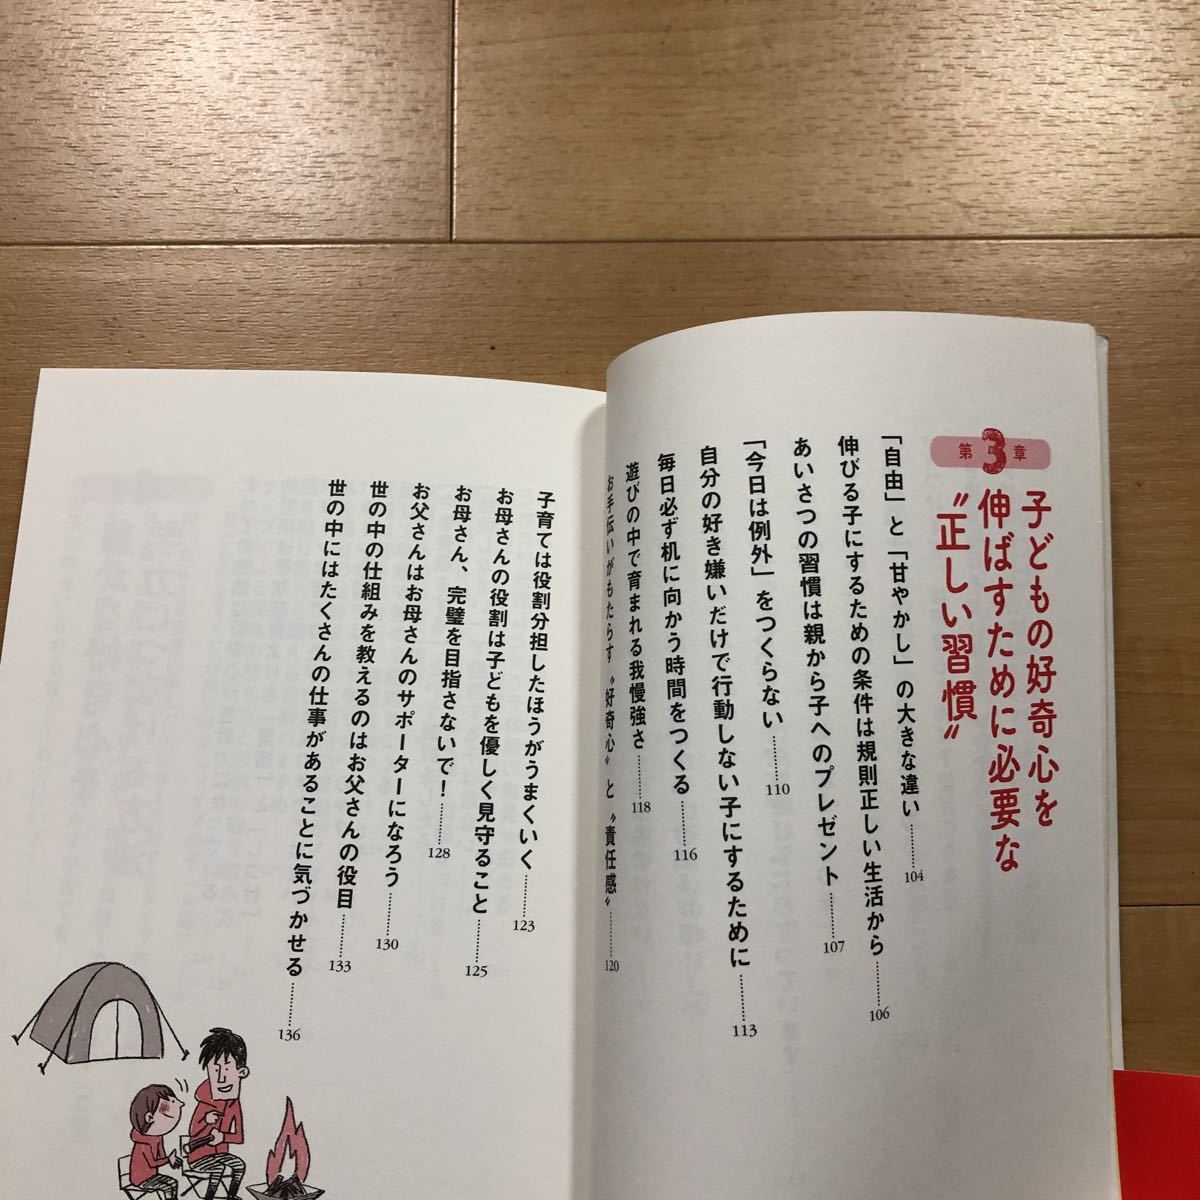 第3章
子どもの好奇心を
伸ばすために必要な
〝正しい習慣〟
「自由」と「甘やかし」の大きな違い………104
伸びる子にするための条件は規則正しい生活から………106
あいさつの習慣は親から子へのプレゼント………107
「今日は例外」をつくらない………110
自分の好き嫌いだけで行動しない子にするために………113
毎日必ず机に向かう時間をつくる………116
遊びの中で育まれる我慢強さ………118
お手伝いがもたらす〝好奇心〟と〝責任感〟………120
子育ては役割分担したほうがうまくいく………123
お母さんの役割は子どもを優しく見守ること………125
お母さん、完璧を目指さないで！………128
お父さんはお母さんのサポーターになろう………130
世の中の仕組みを教えるのはお父さんの役目………133
世の中にはたくさんの仕事があることに気づかせる………136